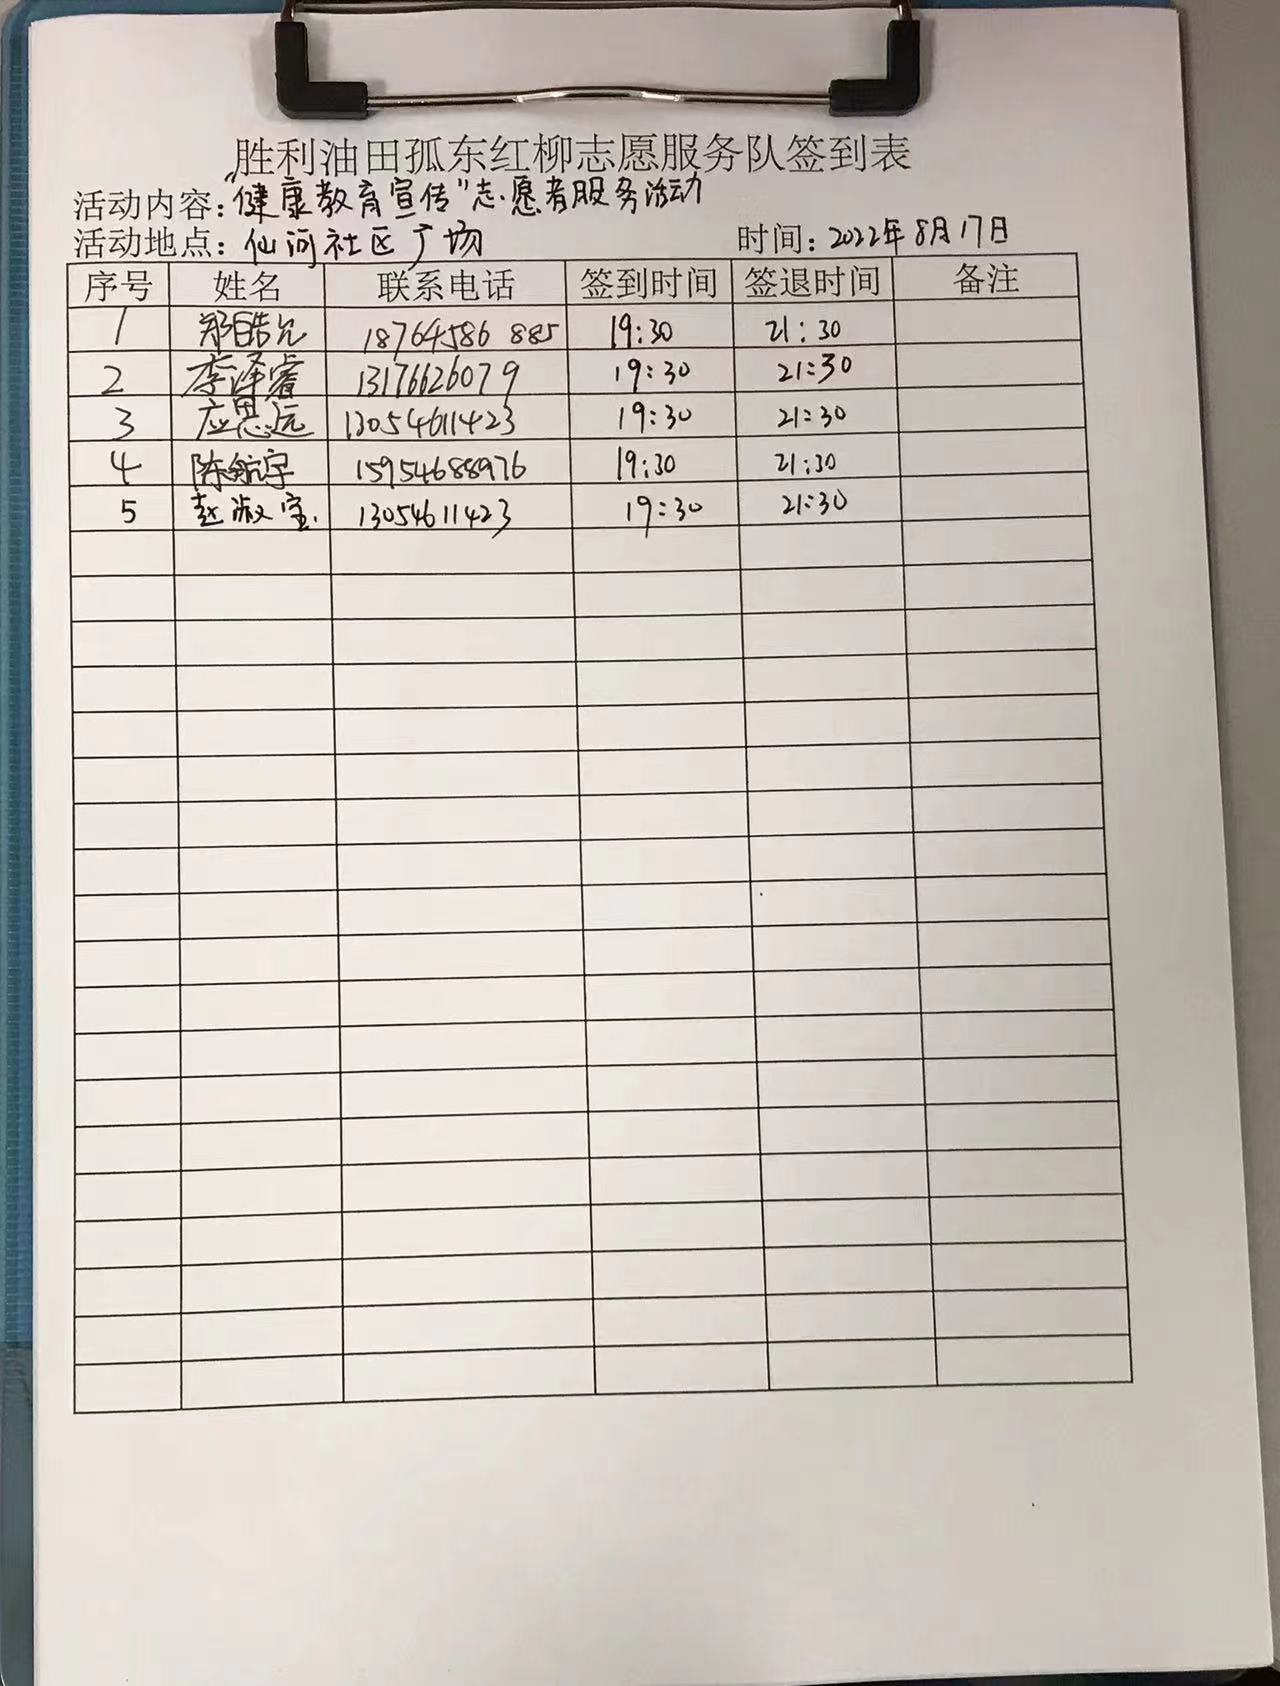 胜利油田孤东红柳志愿服务队签到表
活动内容："健康教育宣传"志愿者服务活动
活动地点：仙河社区广场 时间：2022年8月17日
序号 姓名 联系电话 签到时间 签退时间 备注
1 郑皓允 18764586885 19:30 21:30
2 李泽睿 13176626079 19:30 21:30
3 应思远 13054611423 19:30 21:30
4 陈航宇 15954688976 19:30 21:30
5 赵淑宝 13054611423 19:30 21:30